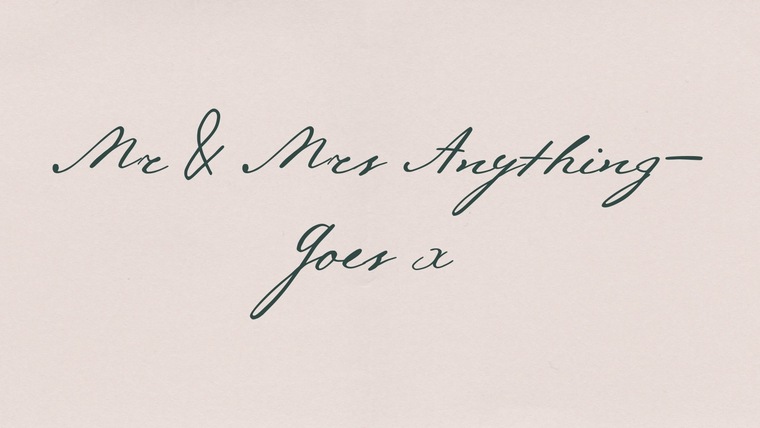 Mr & Mrs Anything-
Goes x